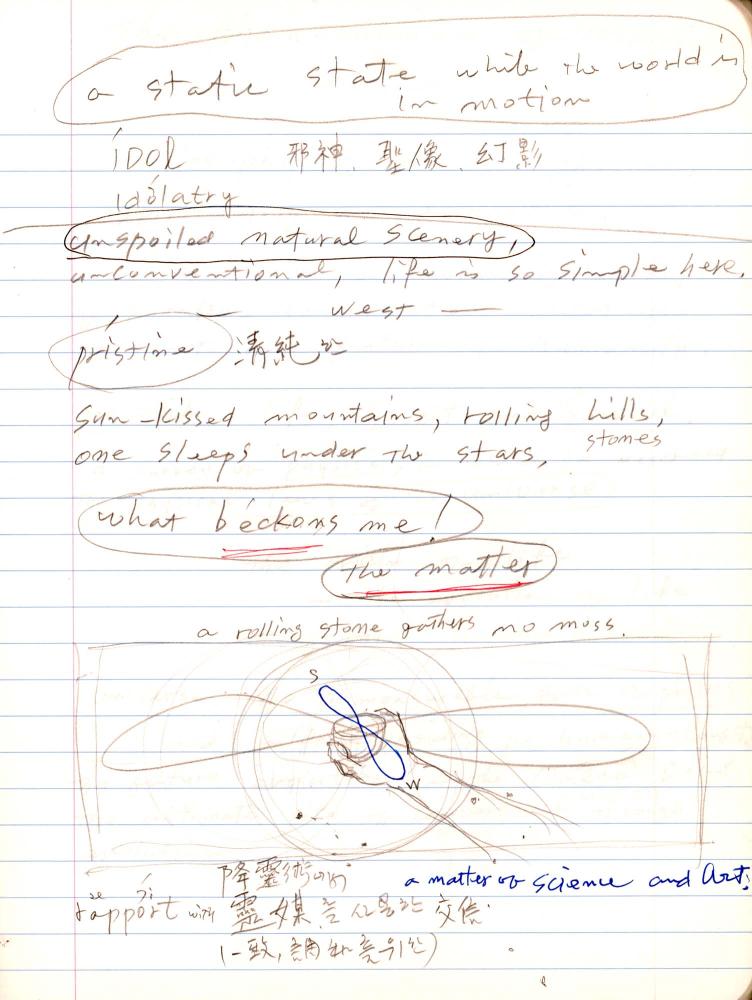 a static state while the world is
in motion
ídol 邪神, 聖像, 幻影
idólatry
unspoiled natural scenery,
unconventional, life is so simple here.
— west —
pristine 清純한
Sun-kissed mountains, rolling hills,
stones
one sleeps under the stars,
what béckons me!
the matter
a rolling stone gathers no moss.
S
W
降靈術에서
a matter of Science and Art.
rapport with 靈媒를 交信
(一致,